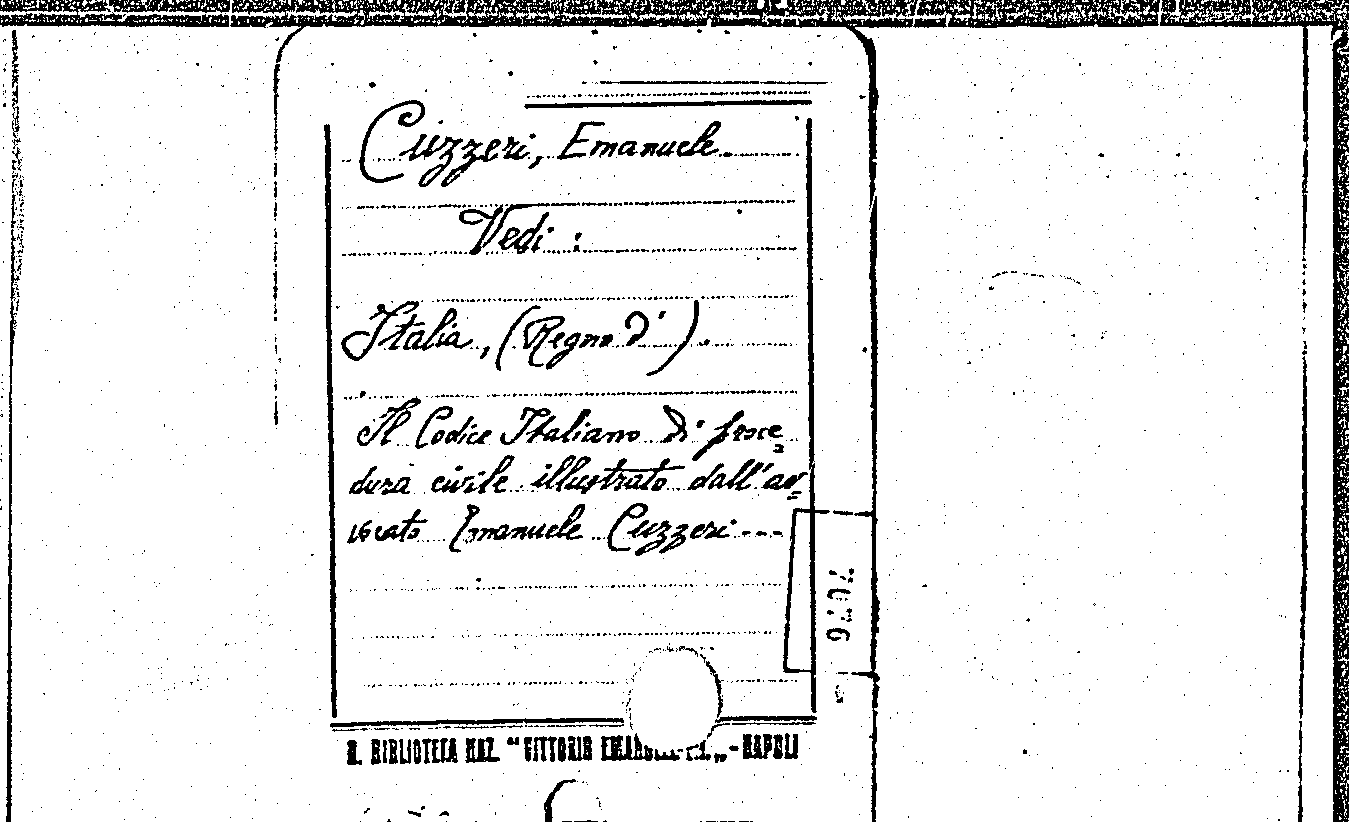 Cuzzeri, Emanuele.
Vedi :
Italia, (Regno d').
Il Codice Italiano di proce
dura civile illustrato dall'av
vocato Emanuele Cuzzeri ---
7076
R. BIBLIOTECA NAZ. “VITTORIO EMANUELE „ - NAPOLI